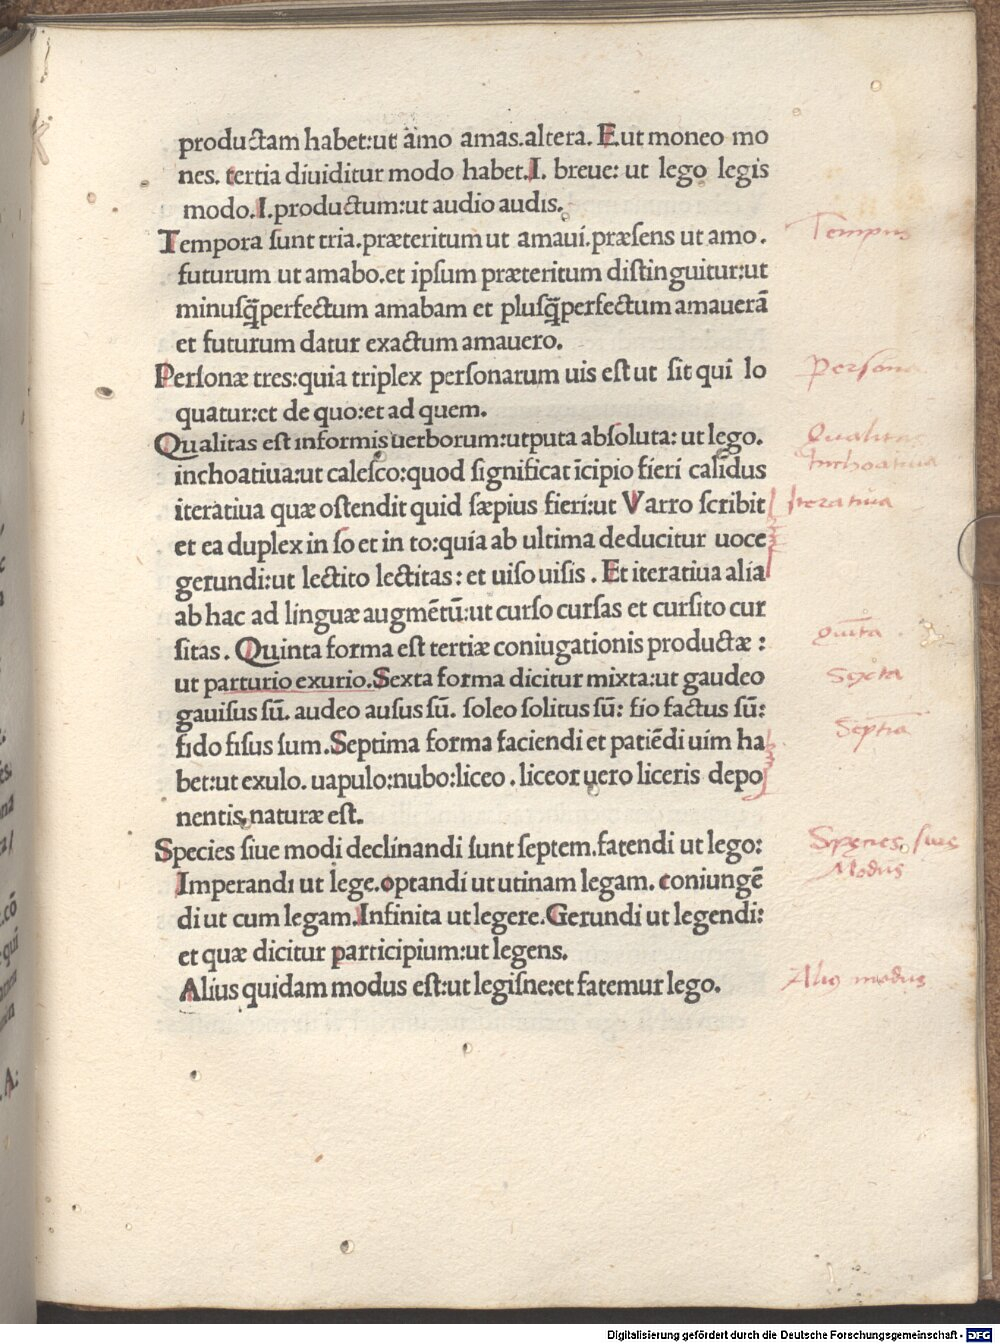 productam habet:ut amo amas.altera. E.ut moneo mo
nes. tertia diuiditur modo habet.I. breue: ut lego legis
modo.I.productum:ut audio audis.
Tempora ſunt tria.præteritum ut amaui.præſens ut amo.
Tempus
futurum ut amabo.et ipſum præteritum diſtinguitur:ut
minuſq̃perfectum amabam et pluſq̃perfectum amauerã
et futurum datur exactum amauero.
Perſonæ tres:quia triplex perſonarum uis eſt ut ſit qui lo
Persona
quatur:et de quo:et ad quem.
Qualitas eſt informis uerborum:utputa abſoluta: ut lego.
Qualitas
inchoatiua:ut caleſco:quod ſignificat ĩcipio fieri calidus
Inchoatiua
iteratiua quæ oſtendit quid ſæpius fieri:ut Varro ſcribit
Iteratiua
et ea duplex in ſo et in to:quia ab ultima deducitur uoce
gerundi:ut lectito lectitas: et uiſo uiſis . Et iteratiua alia
ab hac ad linguæ augmẽtũ:ut curſo curſas et curſito cur
ſitas. Quinta forma eſt tertiæ coniugationis productæ :
Quĩta
ut parturio exurio.Sexta forma dicitur mixta:ut gaudeo
Sexta
gauiſus ſũ. audeo auſus ſũ. ſoleo ſolitus ſũ: fio factus ſũ:
fido fiſus ſum.Septima forma faciendi et patiẽdi uim ha
Septĩa
bet:ut exulo. uapulo:nubo:liceo . liceor uero liceris depo
nentis naturæ eſt.
Species ſiue modi declinandi ſunt ſeptem.fatendi ut lego:
Species siue
Modus
Imperandi ut lege.optandi ut utinam legam. coniungẽ
di ut cum legam.Infinita ut legere.Gerundi ut legendi:
et quæ dicitur participium:ut legens.
Alius quidam modus eſt:ut legiſne:et fatemur lego.
Aliꝰ modus
Digitalisierung gefördert durch die Deutsche Forschungsgemeinschaft - DFG